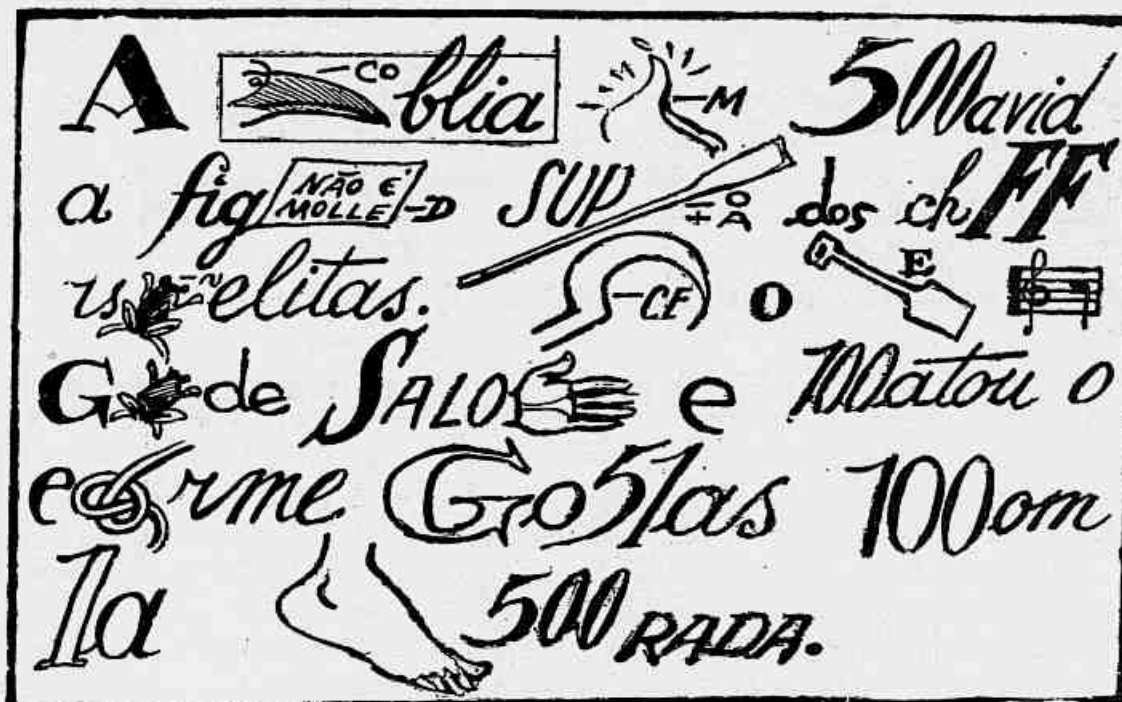 A -CO blia -M 500avid
a fig NÃO E' MOLLE -D SUP -O +A dos chFF
is -N elitas. -CE O E
G de SALO e 100atou o
e rme Go51as 100om
1a 500RADA.